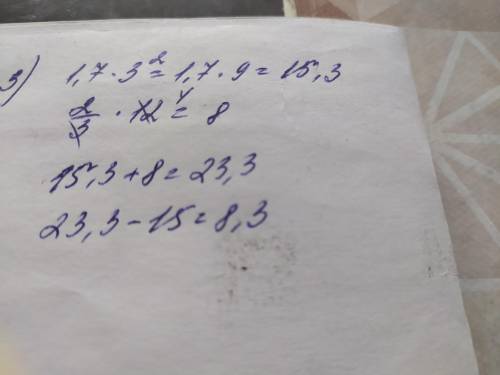 3) 1,7 · 3² = 1,7 · 9 = 15,3
2/3 · 12 4 = 8
15,3 + 8 = 23,3
23,3 - 15 = 8,3